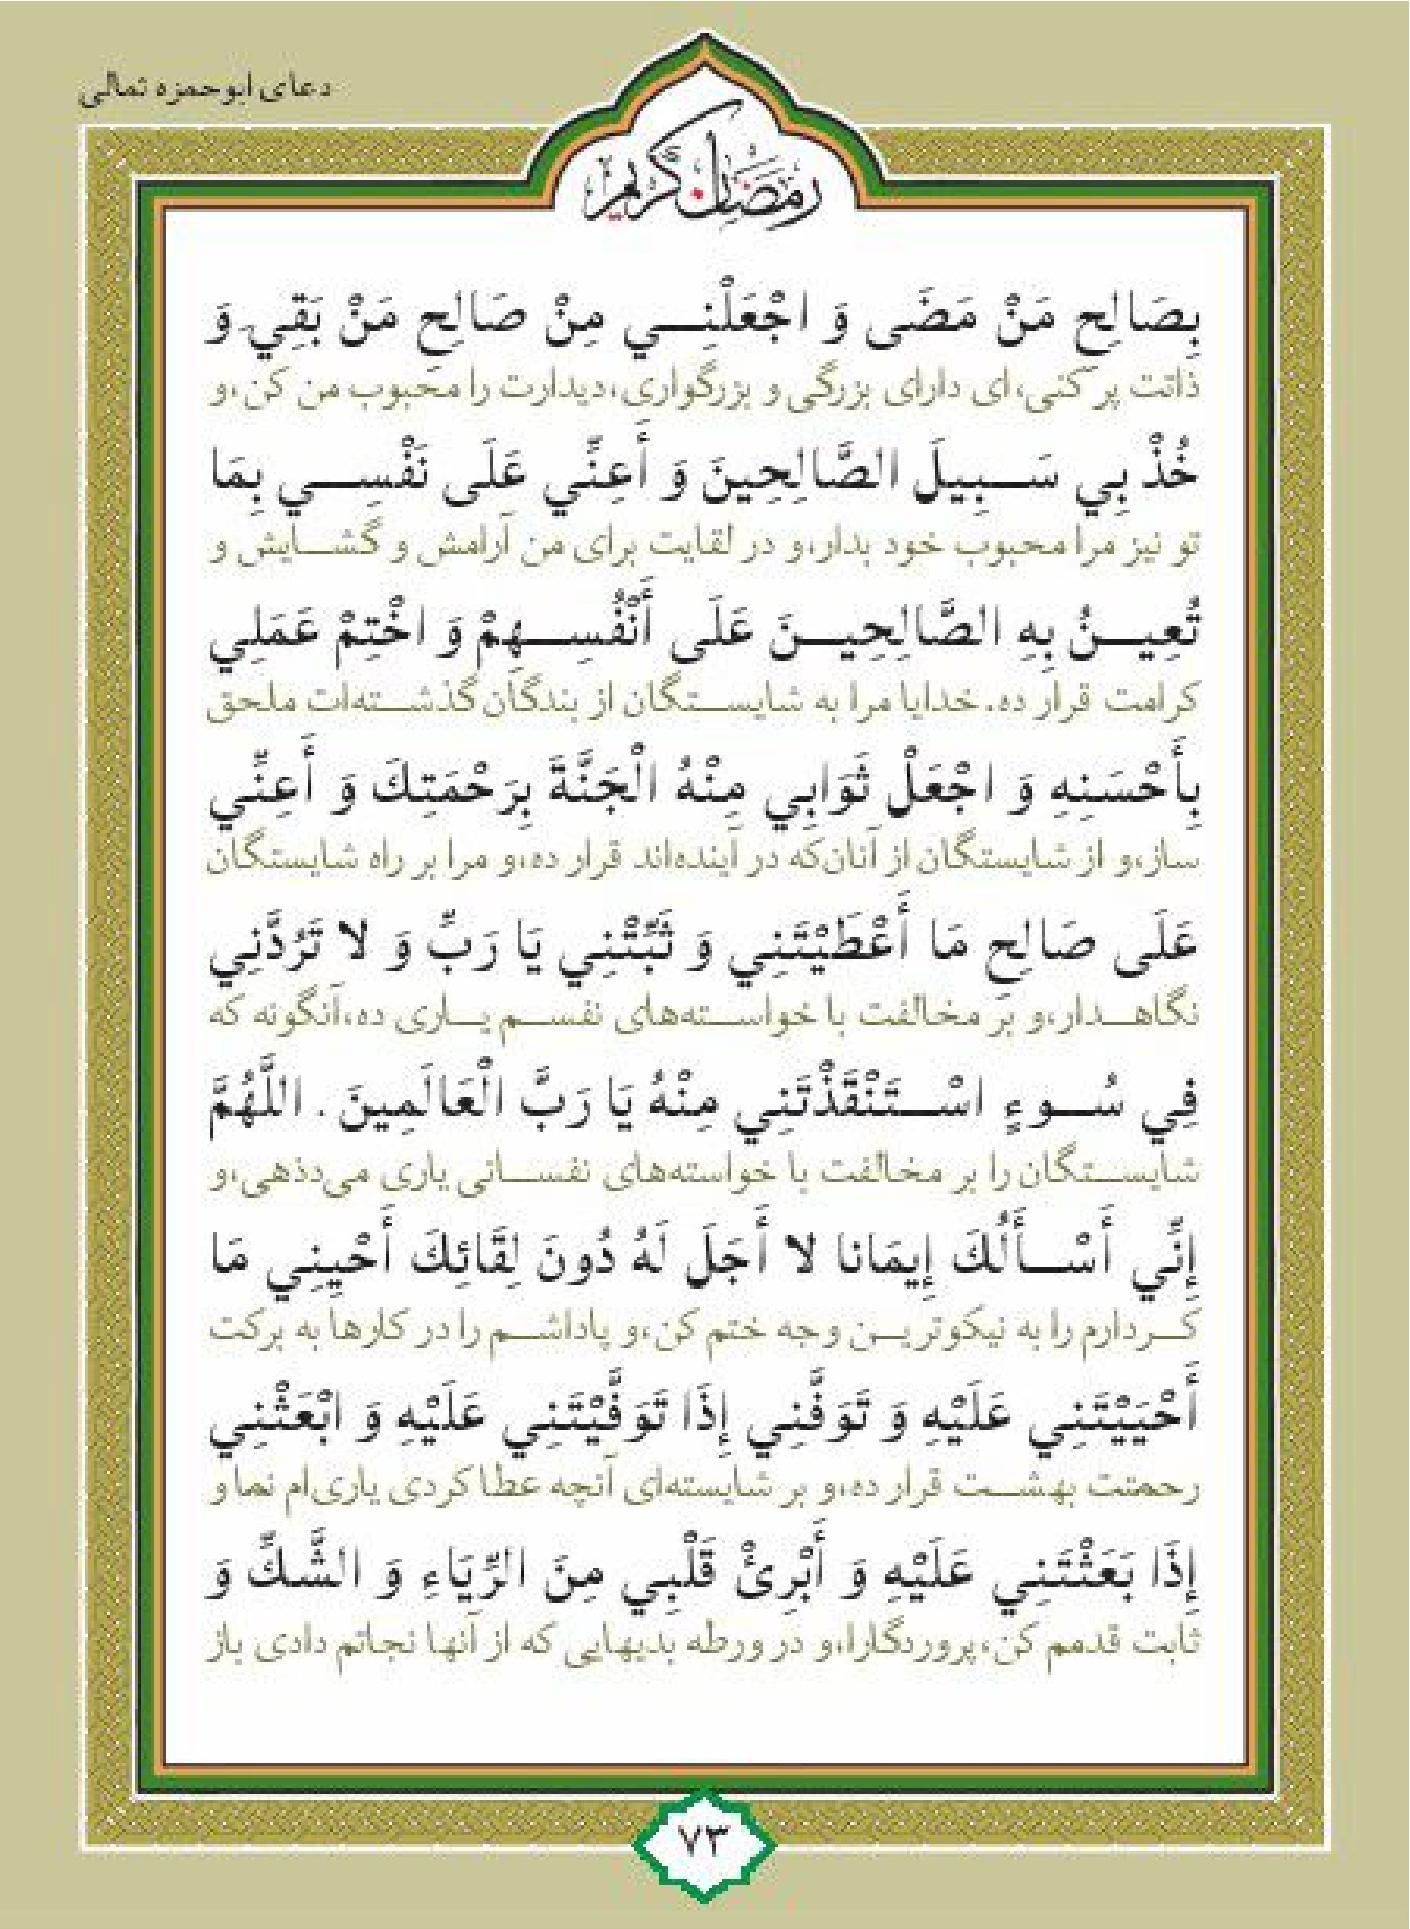 دعای ابوحمزه ثمالی
رمضان كريم
بِصَالِحِ مَنْ مَضَى وَ اجْعَلْنِي مِنْ صَالِحِ مَنْ بَقِيَ وَ
ذاتت پر کنی، ای دارای بزرگی و بزرگواری، دیدارت را محبوب من کن، و
خُذْ بِي سَبِيلَ الصَّالِحِينَ وَ أَعِنِّي عَلَى نَفْسِي بِمَا
تو نیز مرا محبوب خود بدار، و در لقایت برای من آرامش و گشایش و
تُعِينُ بِهِ الصَّالِحِينَ عَلَى أَنْفُسِهِمْ وَ اخْتِمْ عَمَلِي
کرامت قرار ده. خدایا مرا به شایستگان از بندگان گذشته‌ات ملحق
بِأَحْسَنِهِ وَ اجْعَلْ ثَوَابِي مِنْهُ الْجَنَّةَ بِرَحْمَتِكَ وَ أَعِنِّي
ساز، و از شایستگان از آنان‌که در آینده‌اند قرار ده، و مرا بر راه شایستگان
عَلَى صَالِحِ مَا أَعْطَيْتَنِي وَ ثَبِّتْنِي يَا رَبِّ وَ لا تَرُدَّنِي
نگاهدار، و بر مخالفت با خواسته‌های نفسم یاری ده، آنگونه که
فِي سُوءٍ اسْتَنْقَذْتَنِي مِنْهُ يَا رَبَّ الْعَالَمِينَ . اللَّهُمَّ
شایستگان را بر مخالفت با خواسته‌های نفسانی یاری می‌دذهی، و
إِنِّي أَسْأَلُكَ إِيمَانا لا أَجَلَ لَهُ دُونَ لِقَائِكَ أَحْيِنِي مَا
کردارم را به نیکوترین وجه ختم کن، و پاداشم را در کارها به برکت
أَحْيَيْتَنِي عَلَيْهِ وَ تَوَفَّنِي إِذَا تَوَفَّيْتَنِي عَلَيْهِ وَ ابْعَثْنِي
رحمتت بهشت قرار ده، و بر شایسته‌ای آنچه عطا کردی یاری‌ام نما و
إِذَا بَعَثْتَنِي عَلَيْهِ وَ أَبْرِئْ قَلْبِي مِنَ الرِّيَاءِ وَ الشَّكِّ وَ
ثابت قدمم کن، پروردگارا، و در ورطه بدیهایی که از آنها نجاتم دادی باز
۷۳